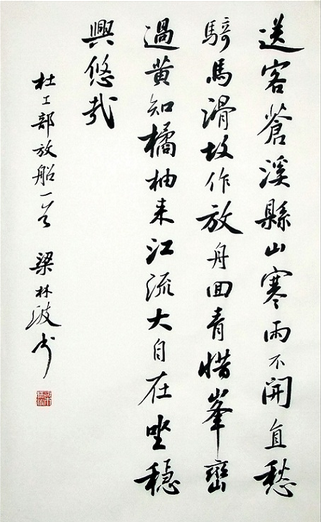 送客蒼溪縣山寒雨不開直愁
騎馬滑故作放舟回青惜峯巒
過黃知橘柚来江流大自在坐穩
興悠哉
杜工部放船一首 梁林波书